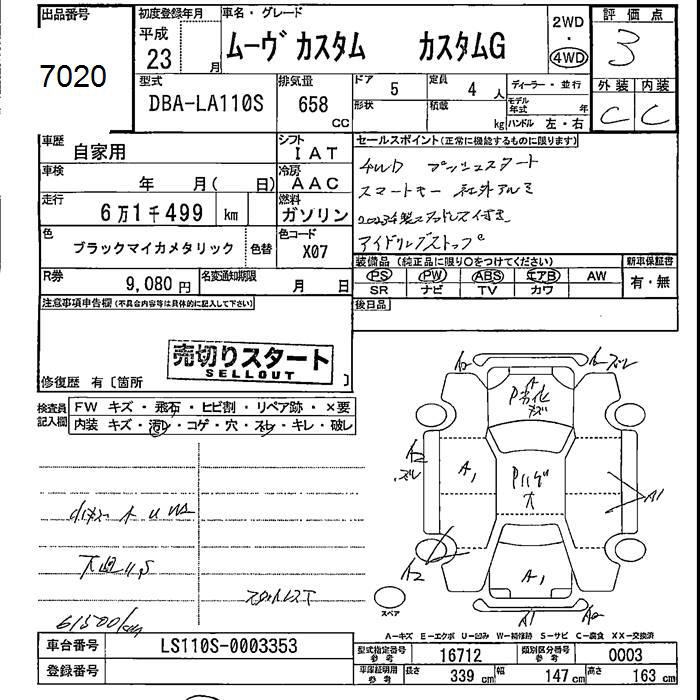 出品番号
7020
初度登録年月
平成
23 月
車名・グレード
ムーヴ カスタム カスタムG
2WD
・
4WD
評価点
3
外装 内装
C C
型式
DBA-LA110S
排気量
658
CC
ドア 5
定員 4 人
形状
積載
kg
ディーラー・並行
モデル年式 年
ハンドル 左・右
車歴
自家用
シフト
IAT
車検
年 月( 日)
冷房
AAC
走行
6万1千499 km
燃料
ガソリン
色
ブラックマイカメタリック
色替
色コード
X07
R券
9,080 円
名変通知期限
月 日
セールスポイント(正常に機能するものに限ります)
4WD プッシュスタート
スマートキー 社外アルミ
アイドリングストップ
装備品(純正品に限り○をつけてください)
新車保証書
PS PW ABS エアB AW
SR ナビ TV カワ
有・無
後日品
注意事項申告欄(不具合内容等は具体的に記入して下さい)
売切りスタート
SELLOUT
修復歴 有〔箇所 〕
検査員
記入欄
FW キズ・飛石・ヒビ割・リペア跡・×要
内装 キズ・汚レ・コゲ・穴・スレ・キレ・破レ
61500km
A2
A2 ズレ
A
P劣化
キズ
A2
ズレ
A1
Pハゲ
大
A1
A2
A1
A1 A2
スペア
A-キズ E-エクボ U-凹み W-補修跡 S-サビ C-腐食 XX-交換済
車台番号
LS110S-0003353
登録番号
型式指定番号
参考
16712
類別区分番号
参考
0003
車庫証明用
参考
長さ 339 cm
幅 147 cm
高さ 163 cm